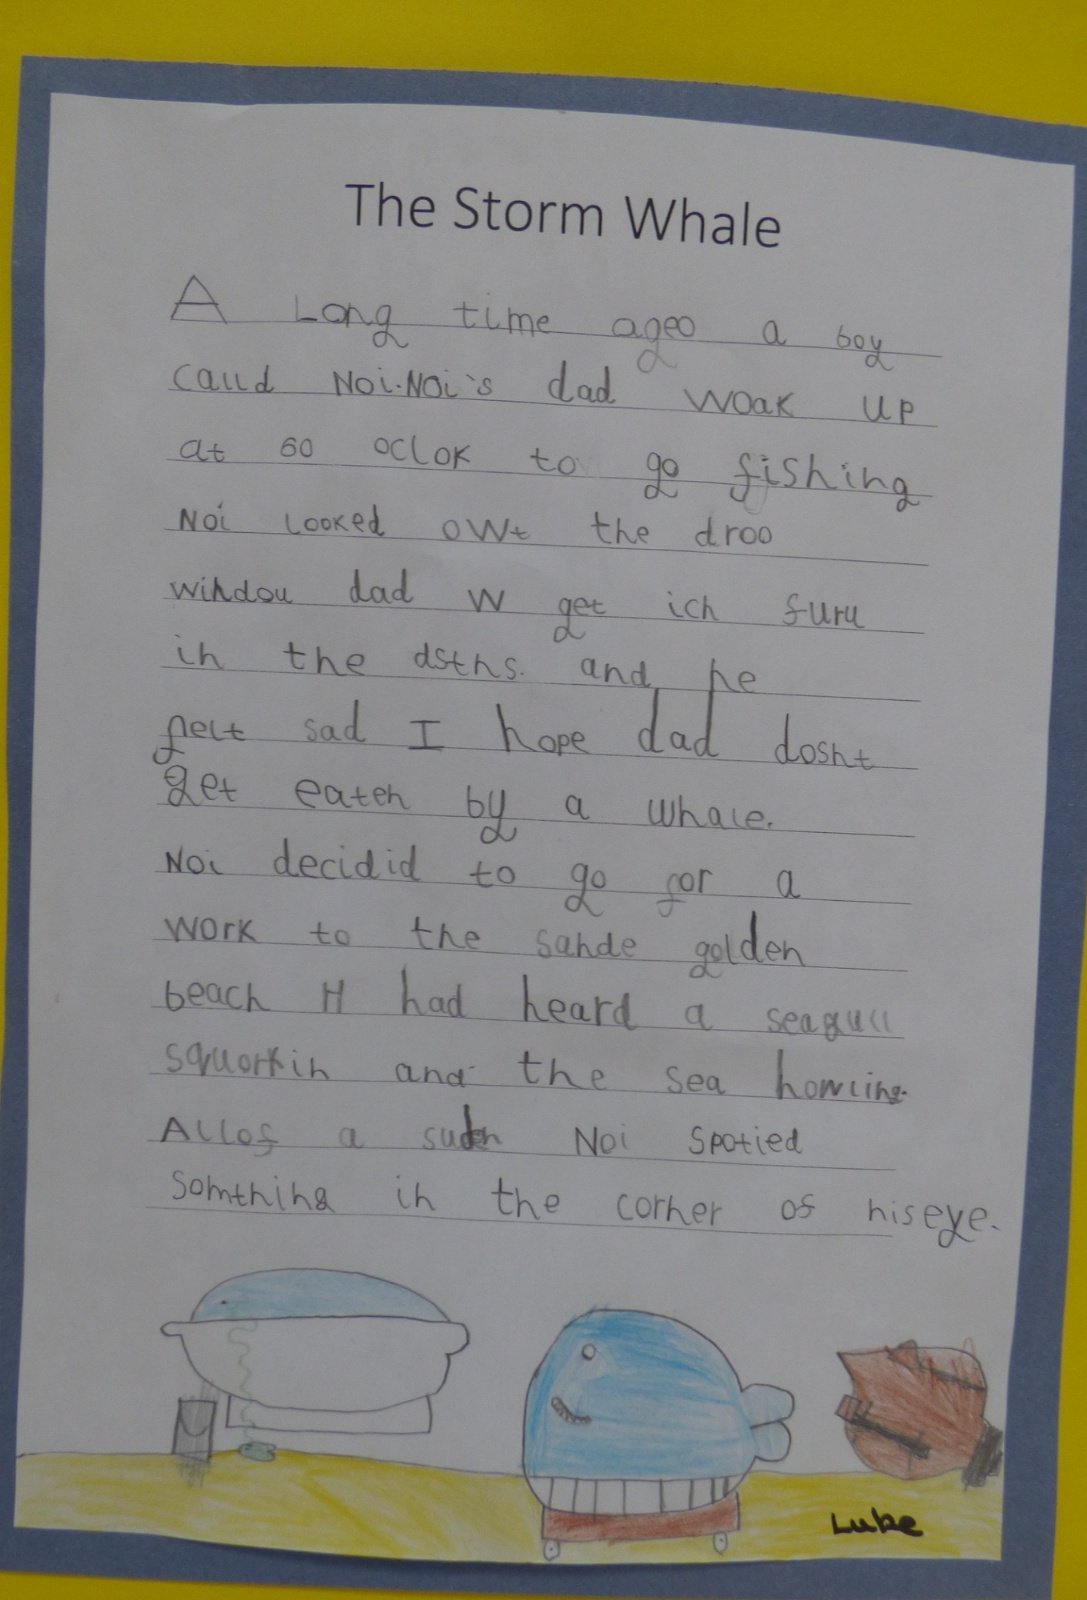 The Storm Whale
A Long time ageo a boy
caLLd Noi.Noi's dad woak up
at 60 oclok to go fishing
Noi Looked owt the droo
windou dad w get ich furu
in the dstns. and he
felt sad I hope dad dosnt
get eaten by a whale.
Noi decidid to go for a
work to the sande golden
beach H had heard a seagull
squorkin and the sea howling.
ALLof a sudn Noi spotied
somthing in the corner of hiseye.
Luke